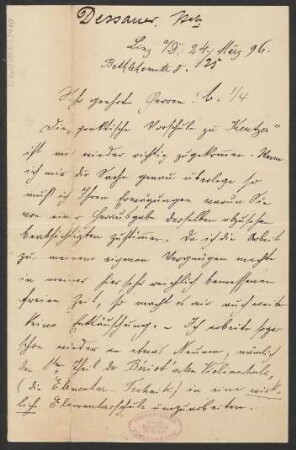 Dessauer,
Linz a/D. 24. März 96.
Bethlehemstr. 8.
Sehr geehrte Herren!
Die „praktische Vorschule zu Kreutzer"
ist mir wieder richtig zugekommen. Wenn
ich mir die Sache genau überlege so
muß ich Ihren Erwägungen warum Sie
von einer Herausgabe derselben abzusehen
beabsichtigten zustimmen. Da ich die Arbeit
zu meinem eigenen Vergnügen machte
in meiner hier sehr reichlich bemessenen
freien Zeit, so macht es mir auch weiter
keine Enttäuschung. – Ich arbeite sogar
schon wieder an etwas Neuem, nämlich
den Theil der Bériot'schen Violinschule,
(die Elementar-Technik) in eine wirk-
lich Elementarschule umzuarbeiten.